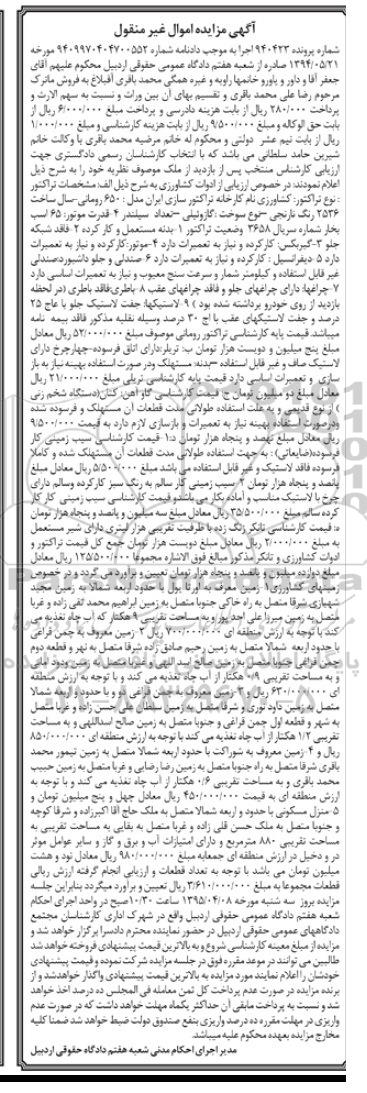 آگهی مزایده اموال غیر منقول
شماره پرونده ۹۴۰۴۲۳ اجرا به موجب دادنامه شماره ۹۴۰۹۹۷۰۴۰۴۷۰۰۵۵۲ مورخه
۱۳۹۴/۰۵/۲۱ صادره از شعبه هفتم دادگاه عمومی حقوقی اردبیل محکوم علیهم آقای
جعفر آقا و داور و یاور و خانمها راویه و غیره همگی محمد باقری آقبلاغ به فروش ماترک
مرحوم رضا علی محمد باقری و تقسیم بهای آن بین وراث و نسبت به سهم الارث و
پرداخت ۲۸۰/۰۰۰ ریال از بابت هزینه دادرسی و پرداخت مبلغ ۶/۰۰۰/۰۰۰ ریال از
بابت حق الوکاله و مبلغ ۹/۵۰۰/۰۰۰ ریال از بابت هزینه کارشناسی و مبلغ ۱/۰۰۰/۰۰۰
ریال از بابت نیم عشر دولتی و محکوم له خانم مرضیه محمد باقری با وکالت خانم
شیرین حامد سلطانی می باشد که با انتخاب کارشناسان رسمی دادگستری جهت
ارزیابی کارشناس منتخب پس از بازدید از ملک موصوف نظریه خود را به شرح ذیل
اعلام نمودند: در خصوص ارزیابی از ادوات کشاورزی به شرح ذیل الف: مشخصات تراکتور
: نوع تراکتور: کشاورزی نام کارخانه تراکتور سازی ایران مدل : ۶۵۰ رومانی-سال ساخت
۲۵۳۶ رنگ نارنجی –نوع سوخت :گازوئیلی –تعداد سیلندر ۴ قدرت موتور: ۶۵ اسب
بخار شماره سریال ۳۶۵۸ وضعیت تراکتور ۱-بدنه مستعمل و کار کرده ۲-فاقد شبکه
جلو ۳-گیربکس: کارکرده و نیاز به تعمیرات دارد ۴-موتور:کارکرده و نیاز به تعمیرات
دارد ۵-دیفرانسیل : کارکرده و نیاز به تعمیرات دارد ۶-صندلی و جلو داشبورد:صندلی
غیر قابل استفاده و کیلومتر شمار و سرعت سنج معیوب و نیاز به تعمیرات اساسی دارد
۷-چراغها: دارای چراغهای جلو و فاقد چراغهای عقب ۸-باطری:فاقد باطری (در لحظه
بازدید از روی خودرو برداشته شده بود ) ۹-لاستیکها: جفت لاستیک جلو با عاج ۲۵
درصد و جفت لاستیکهای عقب با اج ۳۰ درصد وسیله نقلیه مذکور فاقد بیمه نامه
میباشد. قیمت پایه کارشناسی تراکتور رومانی موصوف مبلغ ۵۲/۰۰۰/۰۰۰ ریال معادل
مبلغ پنج میلیون و دویست هزار تومان ب: تریلر:دارای اتاق فرسوده-چهارچرخ دارای
لاستیک صاف و غیر قابل استفاده –بدنه: مستهلک ودر صورت استفاده بهینه نیاز به باز
سازی و تعمیرات اساسی دارد قیمت پایه کارشناسی تریلی مبلغ ۲۱/۰۰۰/۰۰۰ ریال
معادل مبلغ دو میلیون تومان ج: قیمت کارشناسی گاو آهن: کتان(دستگاه شخم زنی
) از نوع قدیمی و به علت استفاده طولانی مدت قطعات آن مستهلک و فرسوده شده
ودرصورت استفاده بهینه نیاز به تعمیرات و بازسازی لازم دارد به قیمت ۹/۵۰۰/۰۰۰
ریال معادل مبلغ نهصد و پنجاه هزار تومان د:۱-قیمت کارشناسی سیب زمینی کار
فرسوده(ضایعاتی) : به جهت استفاده طولانی مدت قطعات آن مستهلک شده و کاملا
فرسوده فاقد لاستیک و غیر قابل استفاده می باشد مبلغ ۵/۵۰۰/۰۰۰ ریال معادل مبلغ
پانصد و پنجاه هزار تومان ۲-سیب زمینی کار سالم به رنگ سبز کارکرده وسالم دارای
چرخ با لاستیک مناسب و آماده بکار می باشدو قیمت کارشناسی سیب زمینی کار کار
کرده سالم مبلغ ۳۵/۵۰۰/۰۰۰ ریال معادل مبلغ سه میلیون و پانصد و پنجاه هزار تومان
ه: قیمت کارشناسی تانکر زنگ زده با ظرفیت تقریبی هزار لیتری دارای شیر مستعمل
به مبلغ ۲/۰۰۰/۰۰۰ ریال معادل مبلغ دویست هزار تومان جمع کل قیمت تراکتور و
ادوات کشاورزی و تانکر مذکور مبالغ فوق الاشاره مجموعا ۱۲۵/۵۰۰/۰۰۰ ریال معادل
مبلغ دوازده میلیون و پانصد و پنجاه هزار تومان تعیین و براورد می گردد و در خصوص
زمینهای کشاورزی۱-زمین معرف به اورتا یول با حدود اربعه شمالا به زمین مجید
شهبازی شرقا متصل به راه خاکی جنوبا متصل به زمین ابراهیم محمد تقی زاده و غربا
متصل به زمین میرزا علی احد پور و به مساحت تقریبی ۹ هکتار که آب چاه تغذیه می
کند با توجه به ارزش منطقه ای ۷۰۰/۰۰۰/۰۰۰ ریال ۲-زمین معروف به چمن قراغی
با حدود اربعه شمالا متصل به زمین رحیم صادق زاده شرقا متصل به نهر و قطعه دوم
چمن قراغی جنوبا متصل به زمین صالح اسد اللهی و غربا متصل به زمین ودود امانی
و به مساحت تقریبی ۰/۹ هکتار از آب چاه تغذیه می کند و با توجه به ارزش منطقه
ای ۶۳۰/۰۰۰/۰۰۰ ریال و ۳-زمین معروف به چمن قراغی دو و با حدود و اربعه شمالا
متصل به زمین داود نوری و شرقا متصل به زمین سلطان علی حسن زاده و غربا متصل
به شهر و قطعه اول چمن قراغی و جنوبا متصل به زمین صالح اسداللهی و به مساحت
تقریبی ۱/۲ هکتار از آب چاه تغذیه می کند با توجه به ارزش منطقه ای ۸۵۰/۰۰۰/۰۰۰
ریال و ۴-زمین معروف به شوراکت با حدود اربعه شمالا متصل به زمین تیمور محمد
باقری شرقا متصل به راه جنوبا متصل به زمین رضا رضایی و غربا متصل به زمین حبیب
محمد باقری و به مساحت تقریبی ۰/۶ هکتار از آب چاه تغذیه می کند و با توجه به
ارزش منطقه ای به قیمت ۴۵۰/۰۰۰/۰۰۰ ریال معادل چهل و پنج میلیون تومان و
۵-منزل مسکونی با حدود و اربعه شمالا متصل به ملک حاج آقا اکبرزاده و شرقا کوچه
و جنوبا متصل به ملک حسن قلی زاده و غربا متصل به بقایی به مساحت تقریبی به
مساحت تقریبی ۸۸۰ مترمربع و دارای امتیازات آب و برق و گاز و سایر عوامل موثر
در و دخیل در ارزش منطقه ای جمعابه مبلغ ۹۸۰/۰۰۰/۰۰۰ ریال معادل نود و هشت
میلیون تومان می باشد با توجه به تعداد قطعات و ارزیابی انجام گرفته ارزش ریالی
قطعات مجموعا به مبلغ ۳/۶۱۰/۰۰۰/۰۰۰ ریال تعیین و براورد میگردد بنابراین جلسه
مزایده بروز سه شنبه مورخه ۱۳۹۵/۰۴/۰۸ ساعت ۱۰/۳۰صبح در واحد اجرای احکام
شعبه هفتم دادگاه عمومی حقوقی اردبیل واقع در شهرک اداری کارشناسان مجتمع
دادگاههای عمومی حقوقی اردبیل در حضور نماینده محترم دادسرا برگزار خواهد شد و
مزایده از مبلغ معینه کارشناسی شروع و به بالاترین قیمت پیشنهادی فروخته خواهد شد
طالبین می توانند در موعد مقرره فوق در جلسه مزایده شرکت نموده و قیمت پیشنهادی
خودشان را اعلام نمایند مورد مزایده به بالاترین قیمت پیشنهادی واگذار خواهدشد و از
برنده مزایده در صورت عدم پرداخت کل ثمن معامله فی المجلس ده درصد اخذ خواهد
شد و نسبت به پرداخت مابقی آن حداکثر یکماه مهلت خواهد داشت که در صورت عدم
واریزی در مهلت مقرره ده درصد واریزی بنفع صندوق دولت ضبط خواهد شد ضمنا کلیه
مخارج مزایده بعهده محکوم علیه میباشد.
مدیر اجرای احکام مدنی شعبه هفتم دادگاه حقوقی اردبیل